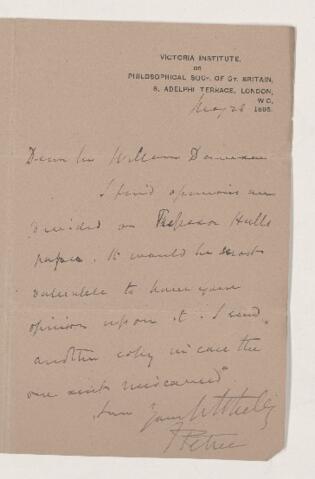 VICTORIA INSTITUTE,
OR
PHILOSOPHICAL SOCY. OF GT. BRITAIN,
8, ADELPHI TERRACE, LONDON,
W.C.
May 28 1895.
Dear Sir William Dawson
I find opinions are
divided on Professor Hulls
paper. It would be most
valuable to have your
opinion upon it. I send
another copy in case the
one sent
Yours
F Petrie